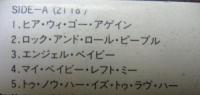 SIDE-A (21'16")
1.ヒア・ウィ・ゴー・アゲイン
2.ロック・アンド・ロール・ピープル
3.エンジェル・ベイビー
4.マイ・ベイビー・レフト・ミー
5.トゥ・ノウ・ハー・イズ・トゥ・ラヴ・ハー